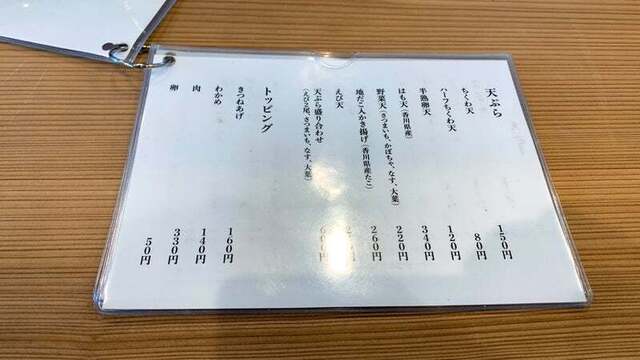 天ぷら
ちくわ天 150円
ハーフちくわ天 80円
半熟卵天 120円
はも天(香川県産) 340円
野菜天(さつまいも、かぼちゃ、なす、大葉) 220円
地だこ入かき揚げ(香川県産たこ) 260円
えび天
天ぷら盛り合わせ
(えび2尾、さつまいも、なす、大葉)
トッピング
きつねあげ 160円
わかめ 140円
肉 330円
卵 50円